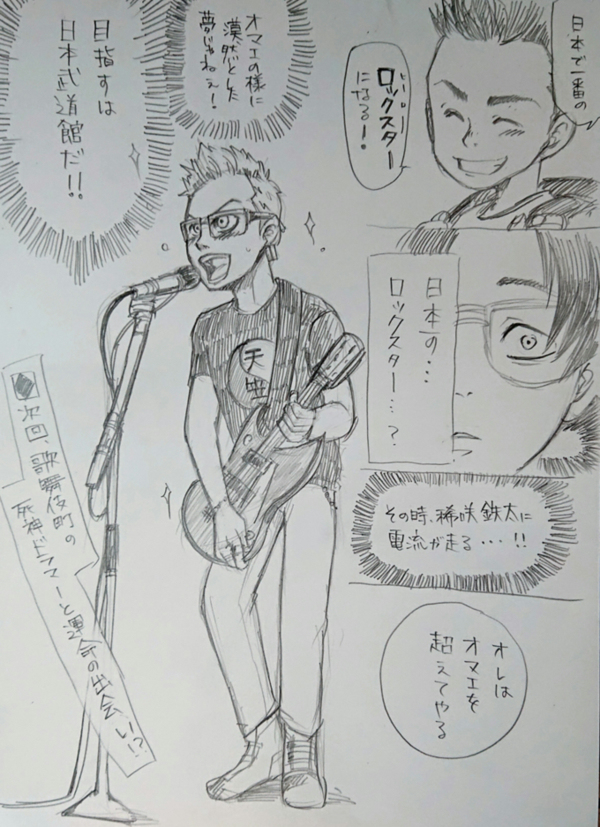 日本で一番の
ロックスター
になる!
日本一の…
ロックスター…?
その時、稀咲鉄太に
電流が走る・・・!!
オレは
オマエを
超えてやる
オマエの様に
漠然とした
夢じゃねぇ!
目指すは
日本武道館だ!!
天竺
次回、歌舞伎町の
死神ドラマーと運命の出会い!?